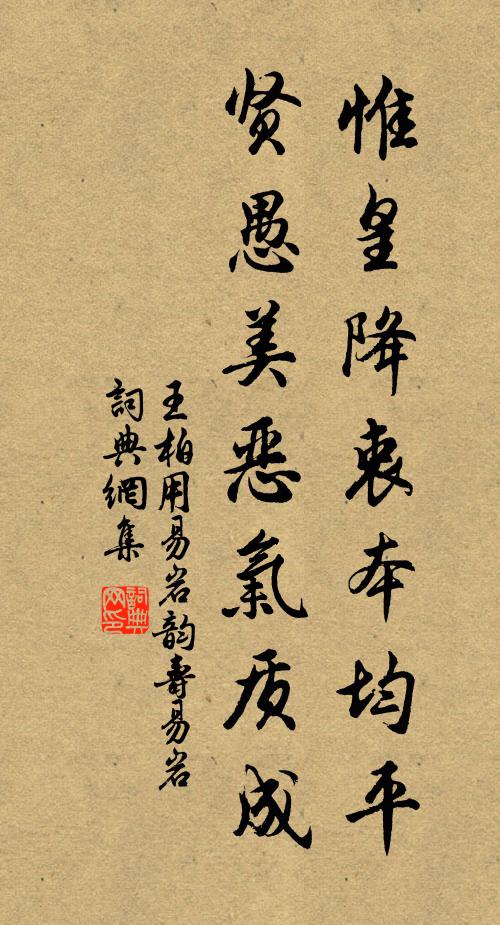 惟皇降衷本均平
贤愚美恶氣质成
王柏用易岩韵壽易岩
詞典網集
詞典网印